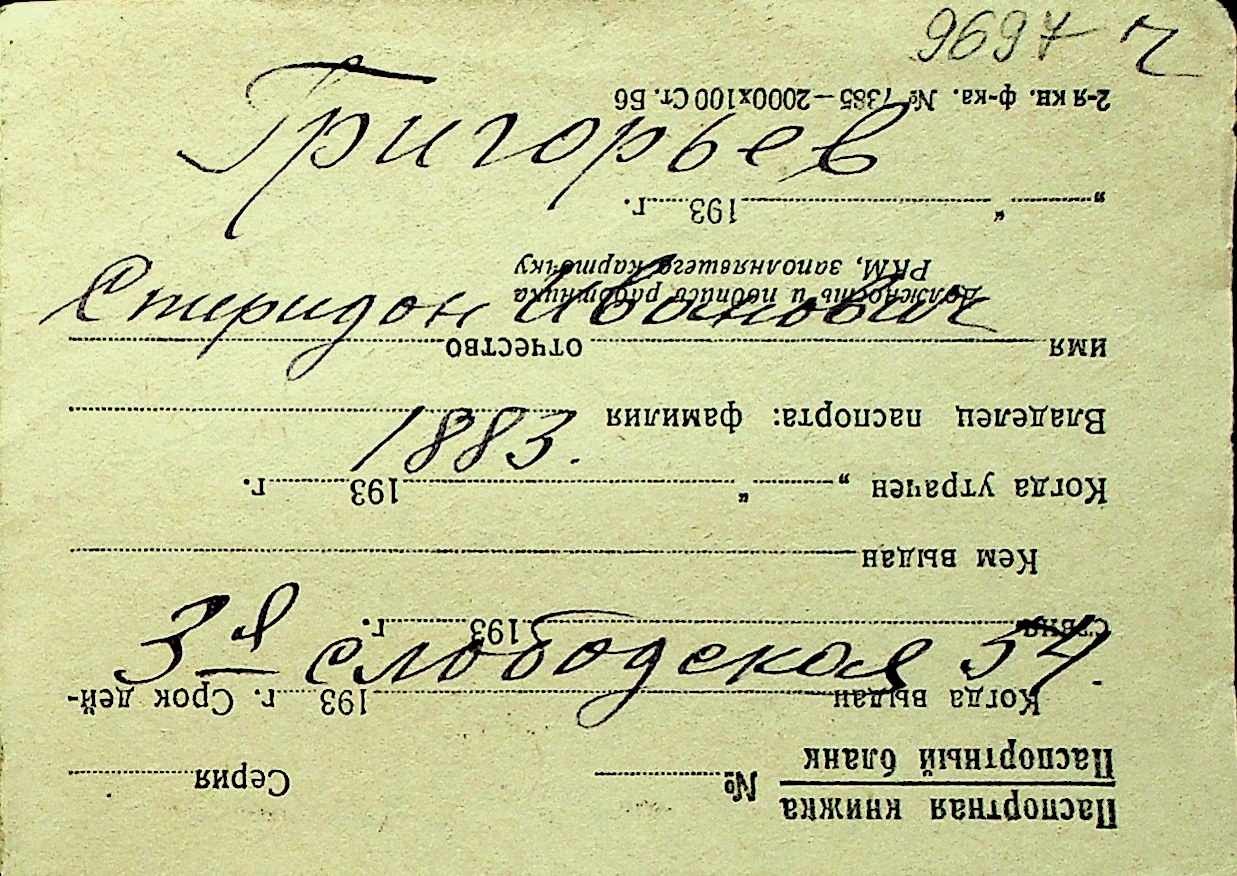 9697 ч
Григорьев
Спиридон Иванович
1883.
3-я слободская 54.
Паспортная книжка
Паспортный бланк
№ Серия
Когда выдан 193 г. Срок дей-
ствия 193 г.
Кем выдан
Когда утрачен „ “ 193 г.
Владелец паспорта: фамилия
имя отчество
Должность и подпись работника
РКМ, заполнявшего карточку
„ “ 193 г.
2-я кн. ф-ка. № 7385—2000х100 Ст. Б6